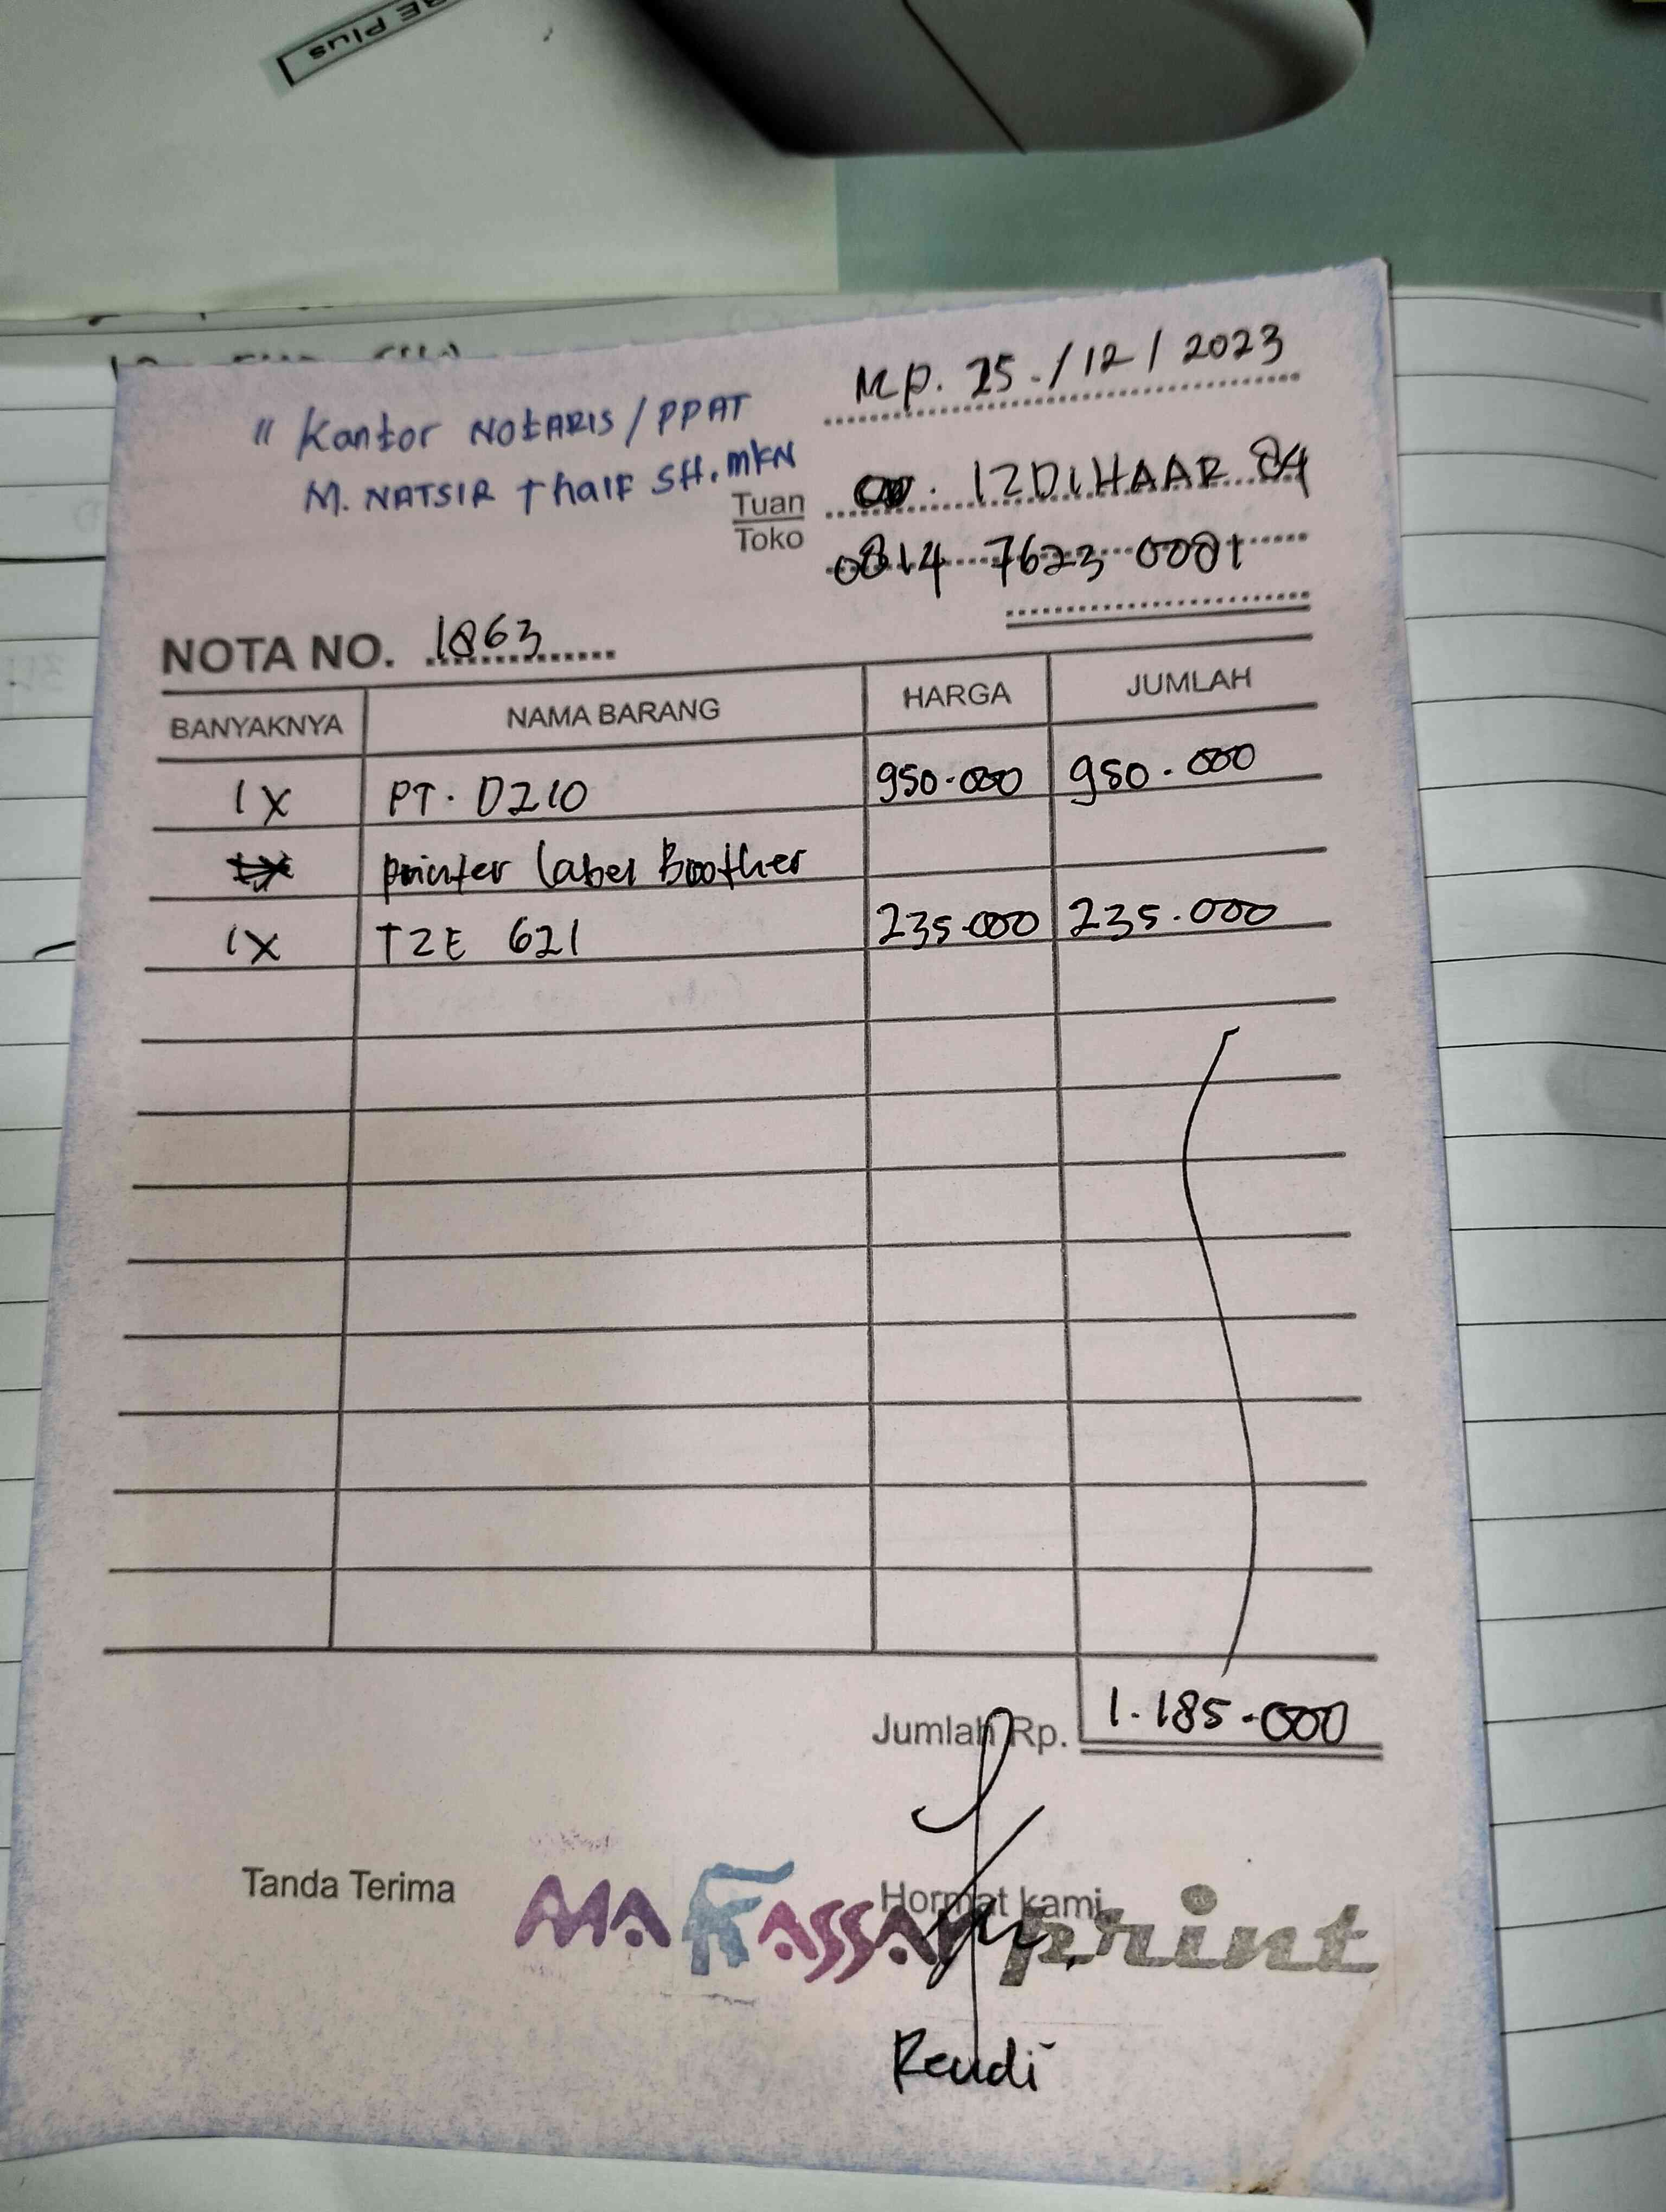 RE Plus
Mp. 25./12/2023
" Kantor NOTARIS/PPAT
M. NATSIR Thaif SH. MKN
Tuan
Toko
IZDIHAAR 84
0814 7623 0081
NOTA NO. 1863
BANYAKNYA NAMA BARANG HARGA JUMLAH
1X PT. D210 950.000 950.000
printer Label Broother
1X TZE 621 235.000 235.000
Jumlah Rp. 1.185.000
Tanda Terima Hormat kami,
MAKASSAR print
Rendi